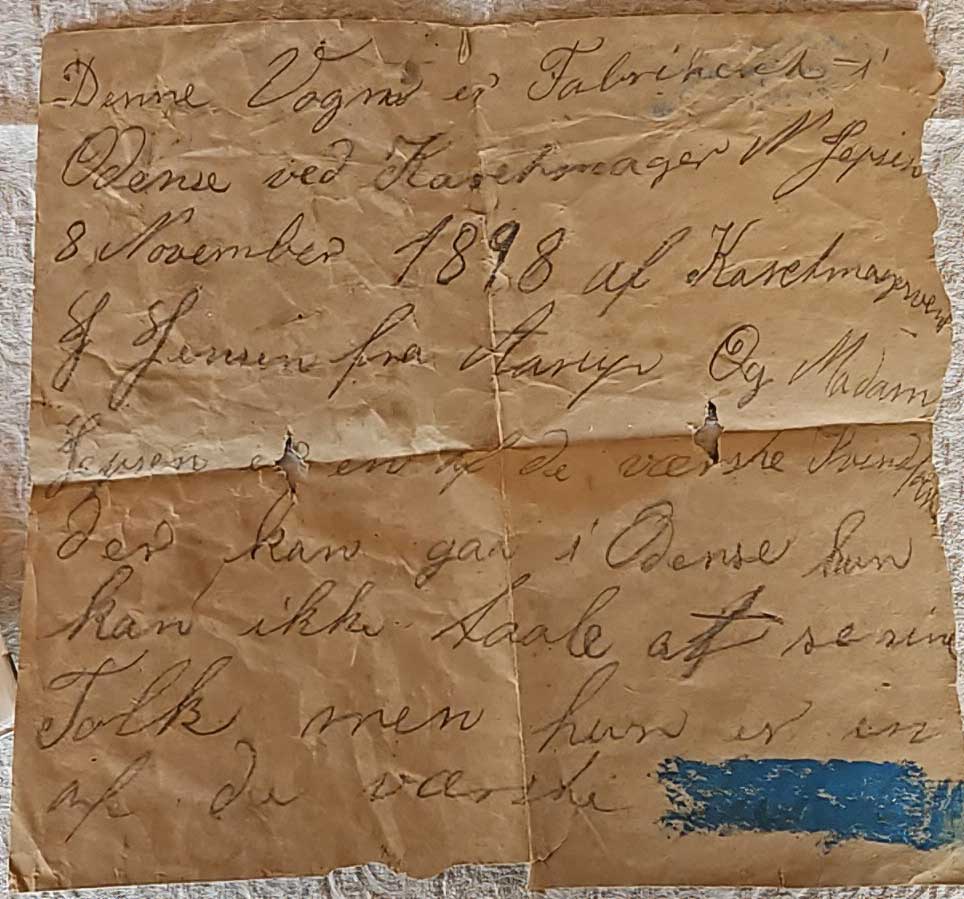 Denne Vogn er Fabrikeret i
Odense ved Karetmager N Jepsen
8 November 1898 af Karetmagersvend
J Jensen fra Aarup Og Madam
Jepsen er en af de værske Kvindfolk
der kan gaa i Odense hun
kan ikke taale at se sine
Folk men hun er en
af de værske